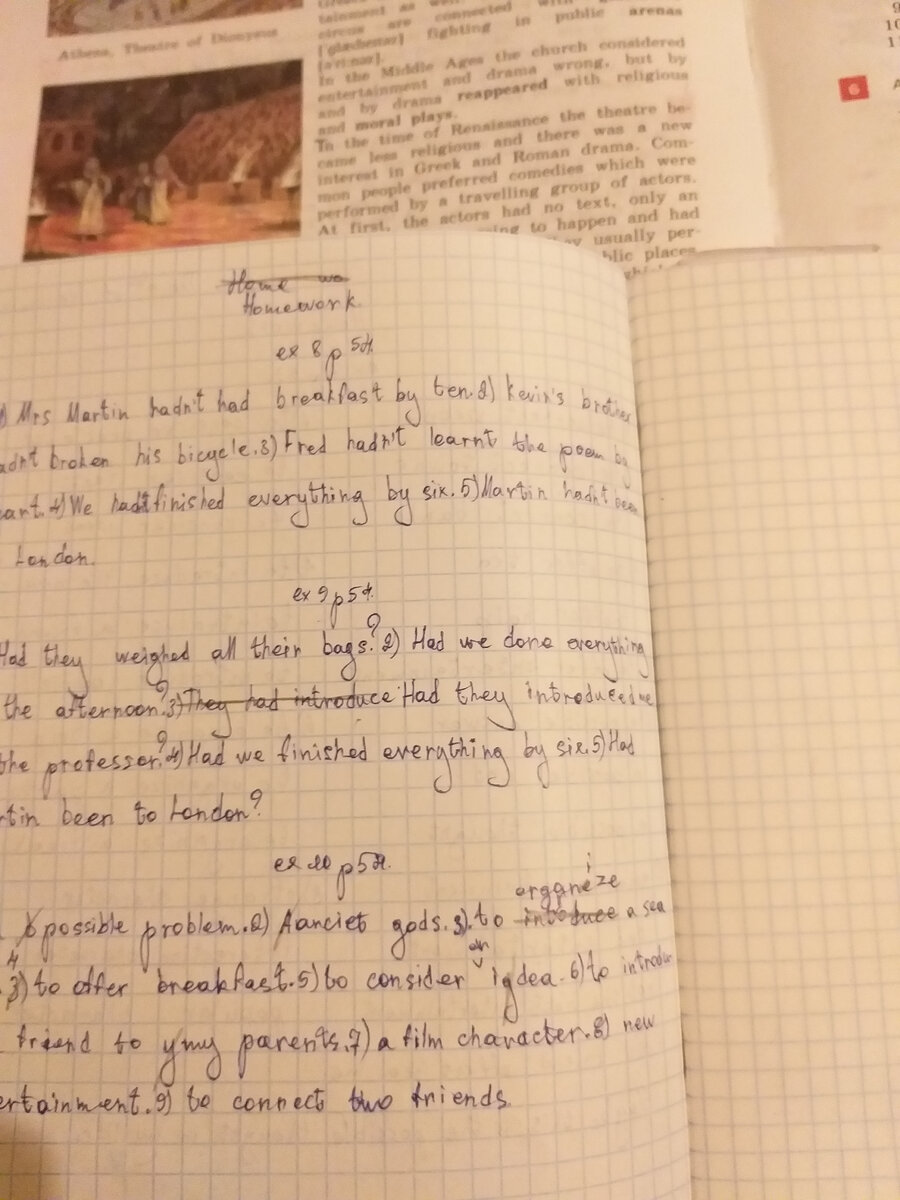 Athens, Theatre of Dionysus
tainment as
circus are connected with
fighting in public arenas
In the Middle Ages the church considered
entertainment and drama wrong, but by
and by drama reappeared with religious
and moral plays.
In the time of Renaissance the theatre be-
came less religious and there was a new
interest in Greek and Roman drama. Com-
mon people preferred comedies which were
performed by a travelling group of actors.
At first, the actors had no text, only an
ing to happen and had
usually per-
blic places
9
10
6 A
Home wo
Homework.
ex 8 p 54.
1) Mrs Martin hadn't had breakfast by ten. 2) Kevin's brother
adnt broken his bicycle. 3) Fred hadn't learnt the poem by
eart. 4) We hadn't finished everything by six. 5) Martin hadn't been
London.
ex 9 p 54.
Had they weighed all their bags? 2) Had we done everything
the afternoon? 3) They had introduce Had they introduced me
the professor? 4) Had we finished everything by six. 5) Had
rtin been to London?
ex 10 p 54.
organize
possible problem. 2) A anciet gods. 3) to introduce a sea
4) to offer breakfast. 5) to consider an idea. 6) to introdu
friend to my parents. 7) a film character. 8) new
ertainment. 9) to connect two friends.